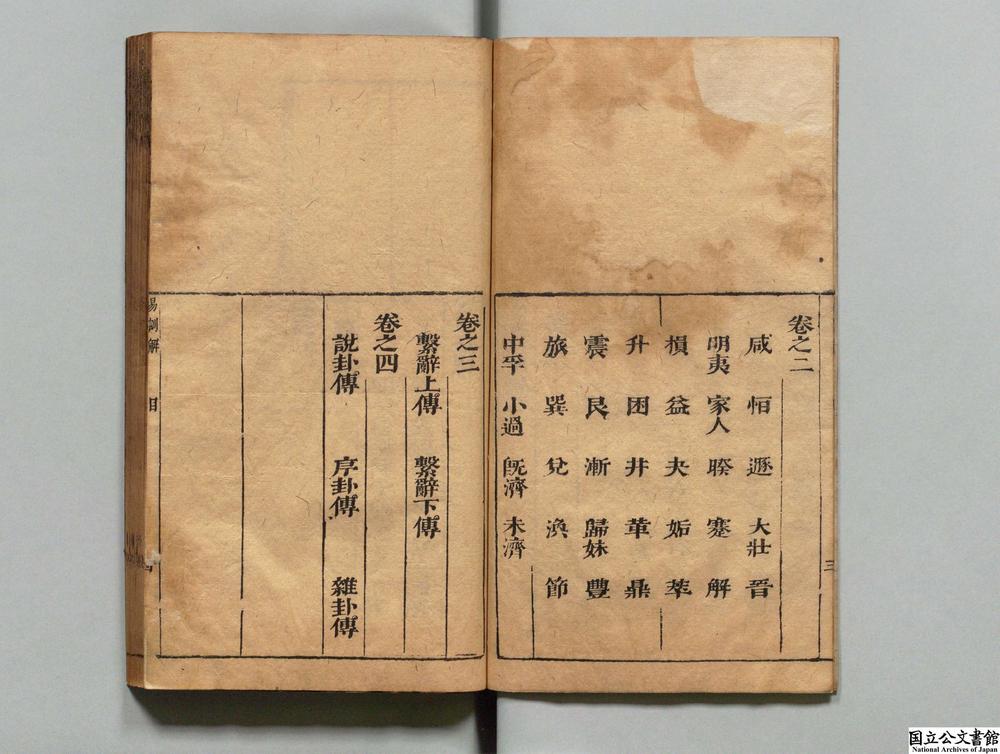 卷之二
咸 恒 遯 大壯 晉
明夷 家人 睽 蹇 解
損 益 夬 姤 萃
升 困 井 革 鼎
震 艮 漸 歸妹 豐
旅 巽 兌 渙 節
中孚 小過 旣濟 未濟
三
卷之三
繫辭上傳 繫辭下傳
卷之四
說卦傳 序卦傳 雜卦傳
易訓解 目
国立公文書館
National Archives of Japan